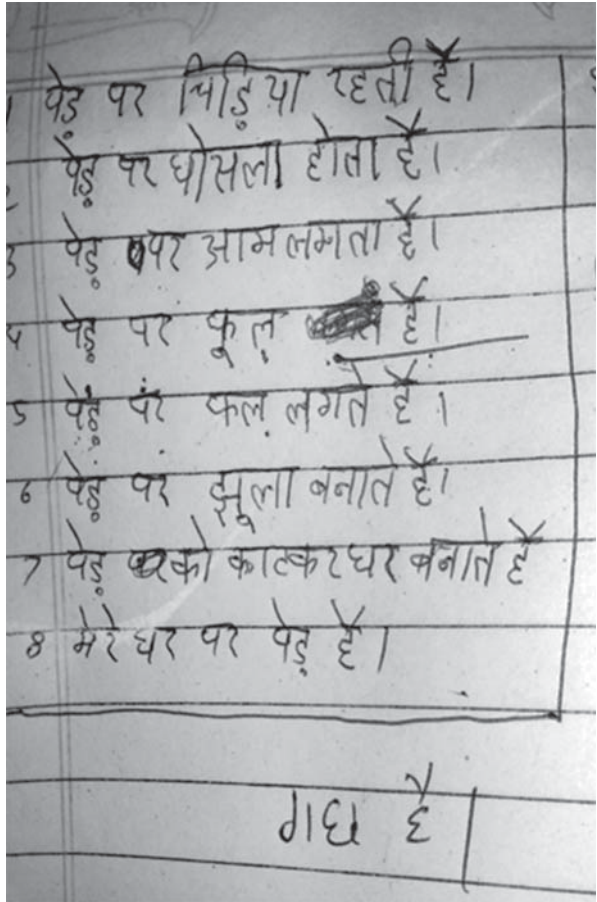 1 पेड़ पर चिड़िया रहती है।
पेड़ पर घोसला होता है।
3 पेड़ पर आम लगता है।
4 पेड़ पर फूल है।
5 पेड़ पर फल लगते है।
6 पेड़ पर झूला बनाते है।
7 पेड़ को काटकर घर बनाते है
8 मेरे घर पर पेड़ है।
गध है।